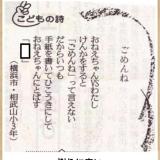 こどもの詩
ごめんね
おねえちゃんとわたし
けんかをすると
「ごめんね」って言えない
だからいつも
手紙を書いてひこうきにして
おねえちゃんにとばす
(横浜市・相武山小3年)